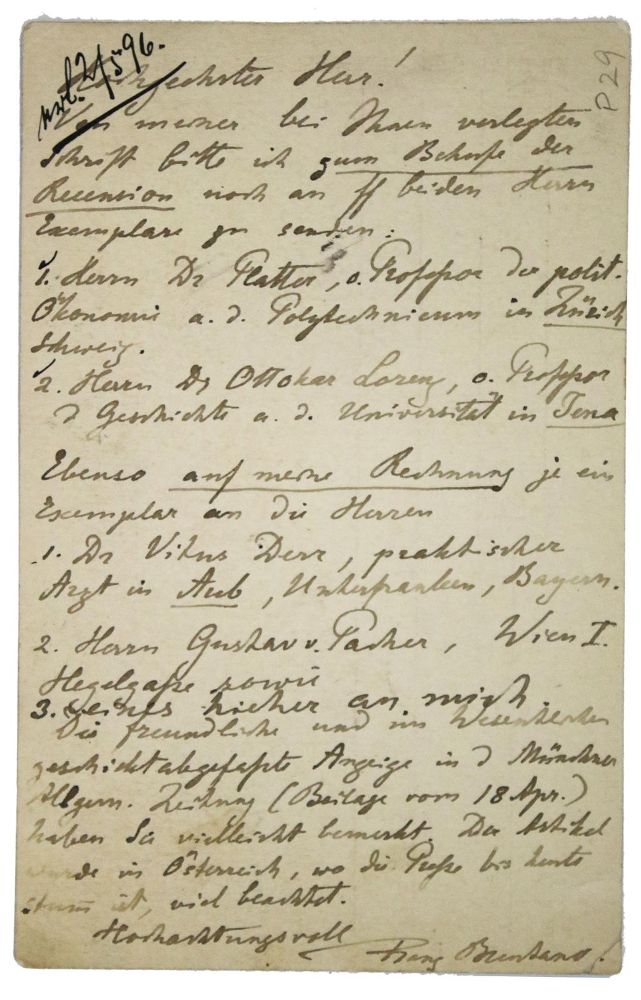 erl. 2/5 96.
P 29
Hochgeehrter Herr!
Von meiner bei Ihnen verlegten
Schrift bitte ich zum Behufe der
Recension noch an ff beiden Herrn
Exemplare zu senden:
1. Herrn Dr Platter, o. Professor der polit.
Ökonomie a. d. Polytechnicum in Zürich
Schweiz.
2. Herrn Dr Ottokar Lorenz, o. Professor
d Geschichte a. d. Universität in Jena
Ebenso auf meine Rechnung je ein
Exemplar an die Herren
1. Dr Vitus Derr, praktischer
Arzt in Aub, Unterfranken, Bayern.
2. Herrn Gustav v. Pacher, Wien I.
Hegelgasse sowie
3. eines hieher an mich.
Die freundliche und im Wesentlichen
geschickt abgefaßte Anzeige in d Münchner
Allgem. Zeitung (Beilage vom 18 Apr.)
haben Sie vielleicht bemerkt. Der Artikel
wurde in Österreich, wo die Presse bis heute
stumm ist, viel beachtet.
Hochachtungsvoll
Franz Brentano